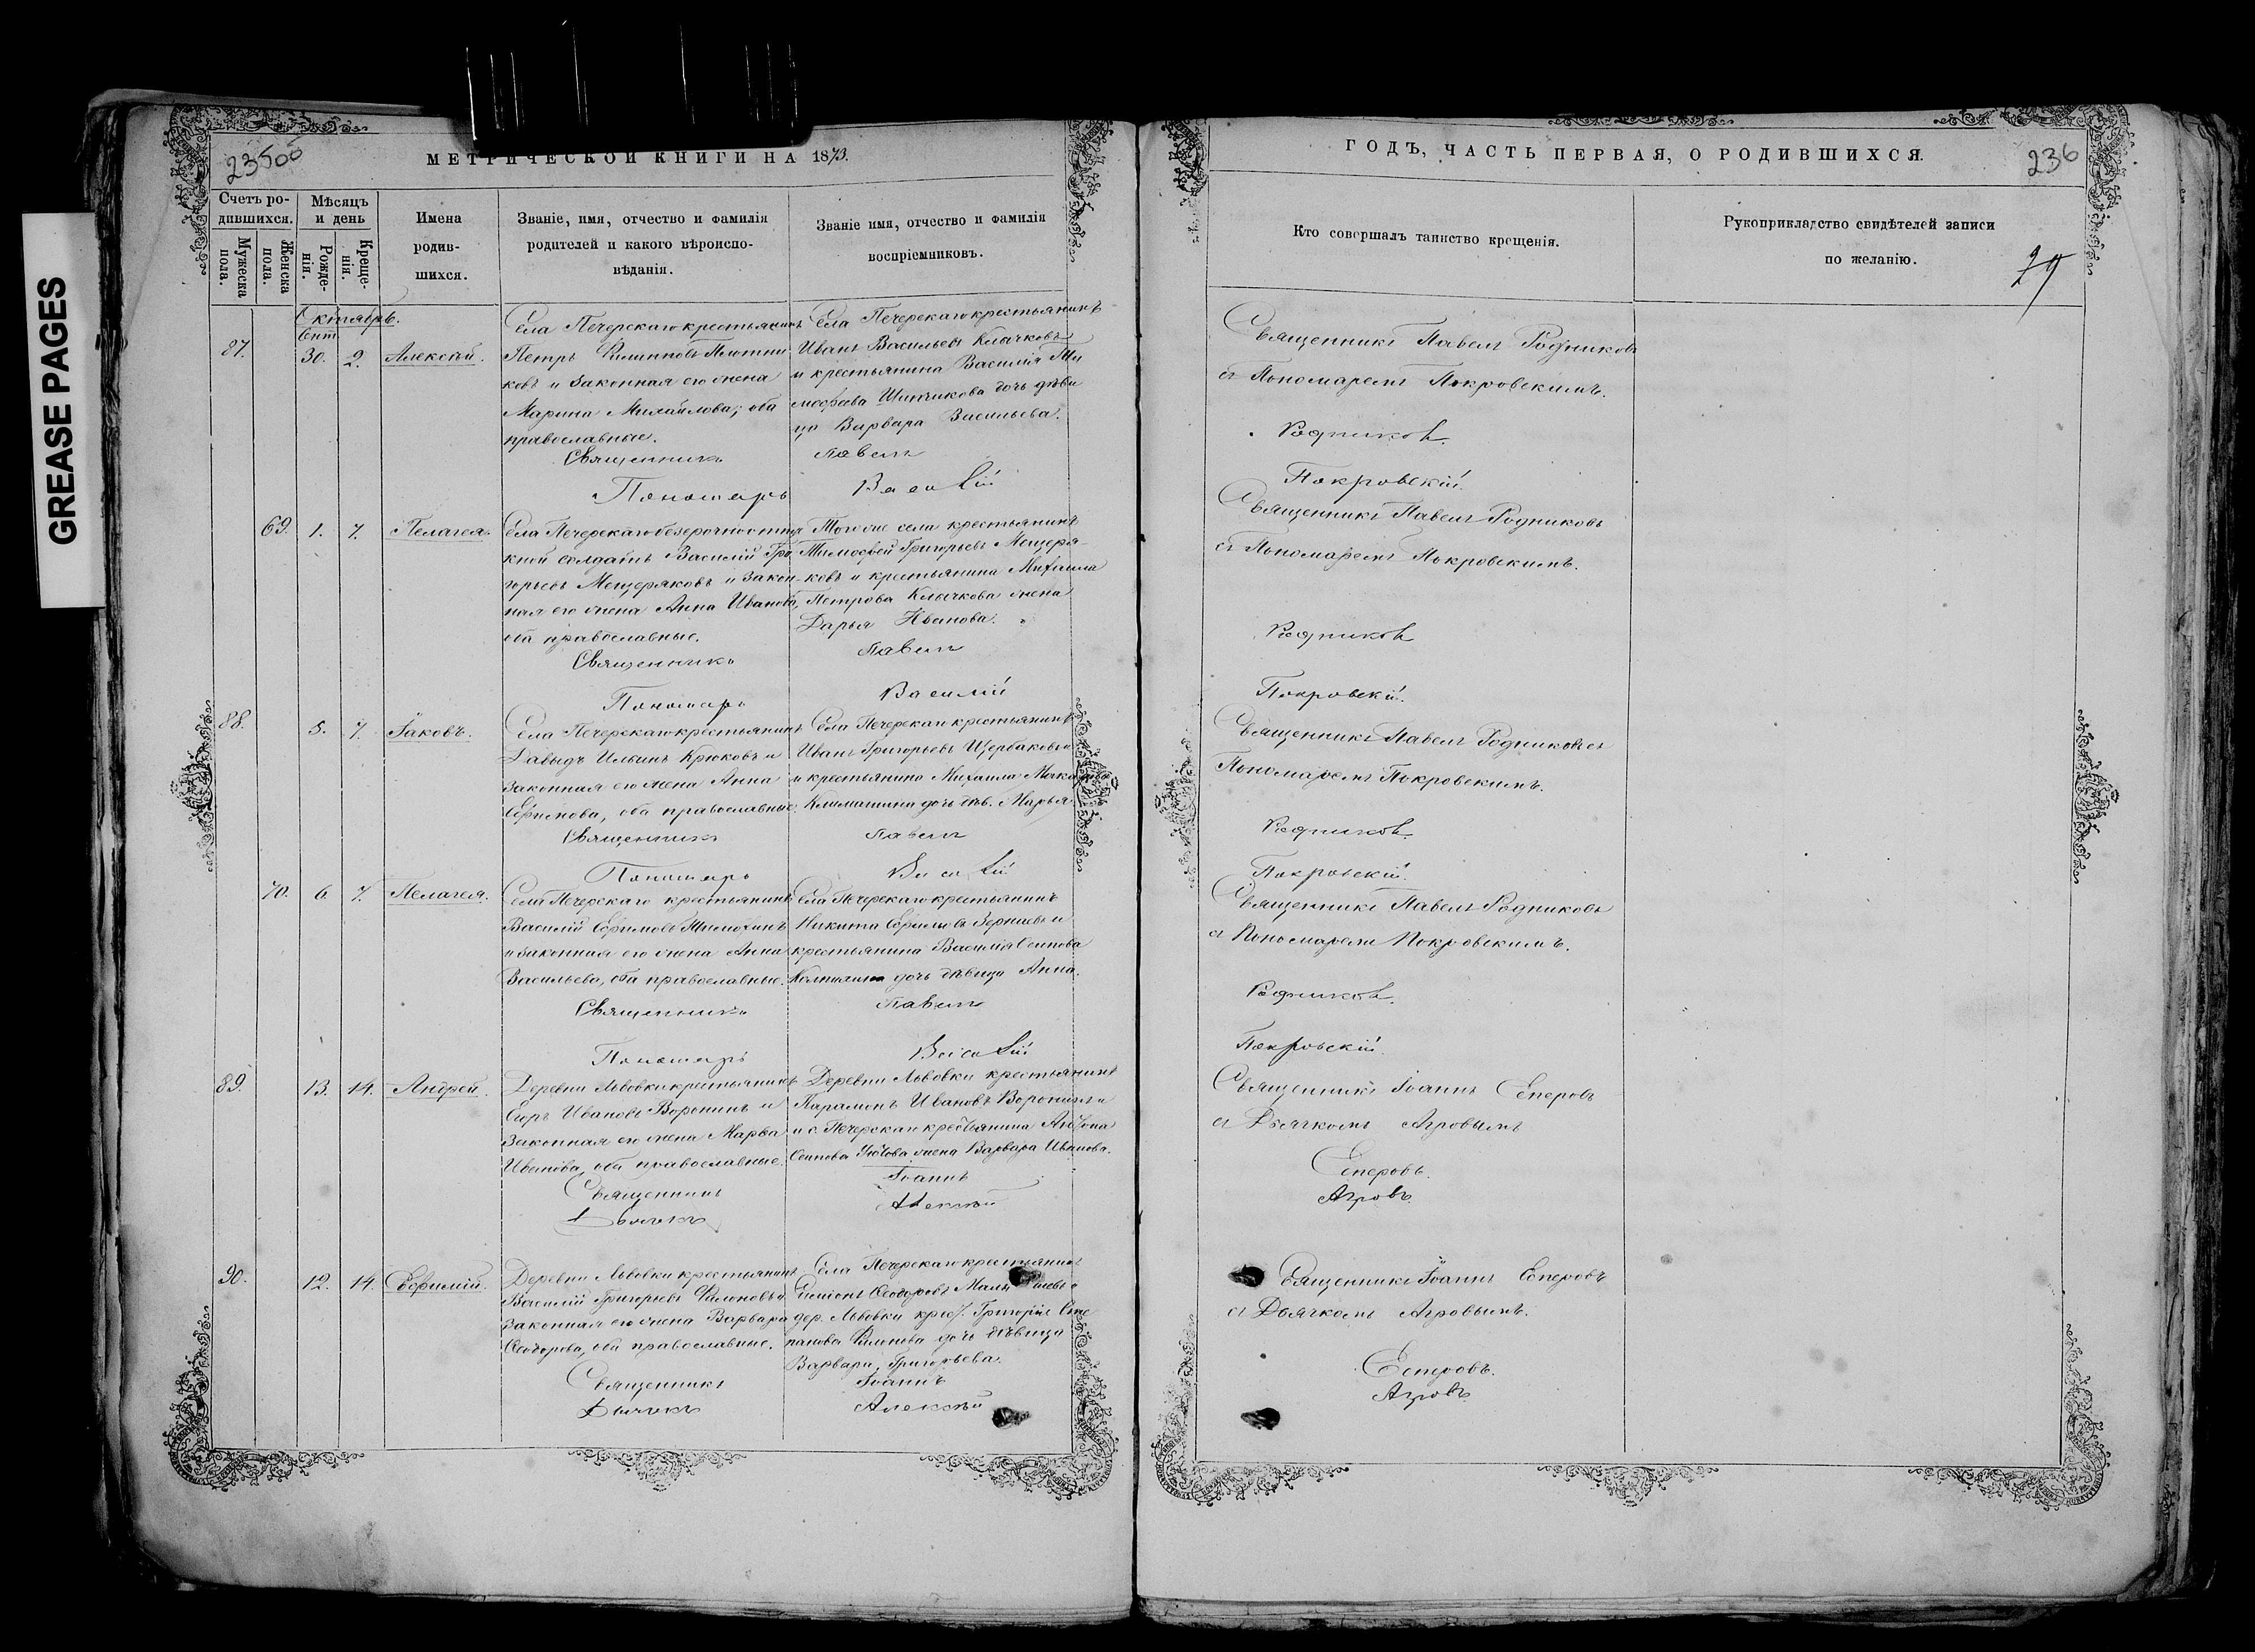 GREASE PAGES
235об
МЕТРИЧЕСКОЙ КНИГИ НА 1873.
Счетъ ро-
дившихся.
Мужеска
пола.
Женска
пола.
Мѣсяцъ
и день
Рожде-
нія.
Креще-
нія.
Имена
родив-
шихся.
Званіе, имя, отчество и фамилія
родителей и какого вѣроиспо-
вѣданія.
Званіе имя, отчество и фамилія
воспріемниковъ.
Октябрь.
Сент.
87. 30. 2. Алексѣй.
Села Печерскаго крестьянинъ
Петръ Филипповъ Плотни
ковъ и законная его жена
Марина Михайлова; оба
православные.
Села Печерскаго крестьянинъ
Иванъ Васильевъ Клачковъ
и крестьянина Василія Ти
мофеева Шинчикова дочь дѣви
ца Варвара Васильева.
Священникъ Павелъ
Пономарь Василій
69. 1. 7. Пелагея.
Села Печерскаго безсрочноотпу
кной солдатъ Василій Гри
горьевъ Мещеряковъ и закон-
ная его жена Анна Иванова,
оба православные.
Того же села крестьянинъ
Тимофей Григорьевъ Мещеря-
ковъ и крестьянина Михаила
Петрова Клычкова жена
Дарья Иванова.
Священникъ Павелъ
Пономарь Василій
88. 5. 7. Іаковъ.
Села Печерскаго крестьянинъ
Давыдъ Ильинъ Крюковъ и
законная его жена Анна
Ефимова, оба православные.
Села Печерскаго крестьянинъ
Иванъ Григорьевъ Щербаковъ
и крестьянина Михаила
Климашина дочь дѣв. Марья.
Священникъ Павелъ
Пономарь Василій
70. 6. 7. Пелагея.
Села Печерскаго крестьянинъ
Василій Ефимовъ Тимохинъ
и законная его жена Анна
Васильева, оба православные.
Села Печерскаго крестьянинъ
Никита Ефимовъ и
крестьянина Василія Осипова
дочь дѣвица Анна.
Священникъ Павелъ
Пономарь Василій
89. 13. 14. Андрей.
Деревни Львовки крестьянинъ
Егоръ Ивановъ Воронинъ и
законная его жена Марѳа
Иванова, оба православные.
Деревни Львовки крестьянинъ
Парамонъ Ивановъ Воронинъ
и с. Печерскаго крестьянина Антона
Осипова жена Варвара Иванова.
Священникъ Іоаннъ
Дьячекъ Алексѣй
90. 12. 14. Евфимій.
Деревни Львовки крестьянинъ
Василій Григорьевъ Филоновъ и
законная его жена Варвара
Ѳеодорова, оба православные.
Села Печерскаго крестьянинъ
Симіонъ Ѳеодоровъ
дер. Львовки Григорія Сте
панова Филонова дочь дѣвица
Варвара Григорьева.
Священникъ Іоаннъ
Дьячекъ Алексѣй
ГОДЪ, ЧАСТЬ ПЕРВАЯ, О РОДИВШИХСЯ.
236
Кто совершалъ таинство крещенія.
Рукоприкладство свидѣтелей записи
по желанію.
Священникъ Павелъ Родниковъ
съ Пономаремъ Покровскимъ.
Родниковъ.
Покровскій.
Священникъ Павелъ Родниковъ
съ Пономаремъ Покровскимъ.
Родниковъ
Покровскій.
Священникъ Павелъ Родниковъ съ
Пономаремъ Покровскимъ.
Родниковъ.
Покровскій.
Священникъ Павелъ Родниковъ
съ Пономаремъ Покровскимъ.
Родниковъ.
Покровскій.
Священникъ Іоаннъ Еперовъ
съ Дьячкомъ Агровымъ
Еперовъ.
Агровъ.
Священникъ Іоаннъ Еперовъ
съ Дьячкомъ Агровымъ.
Еперовъ.
Агровъ.